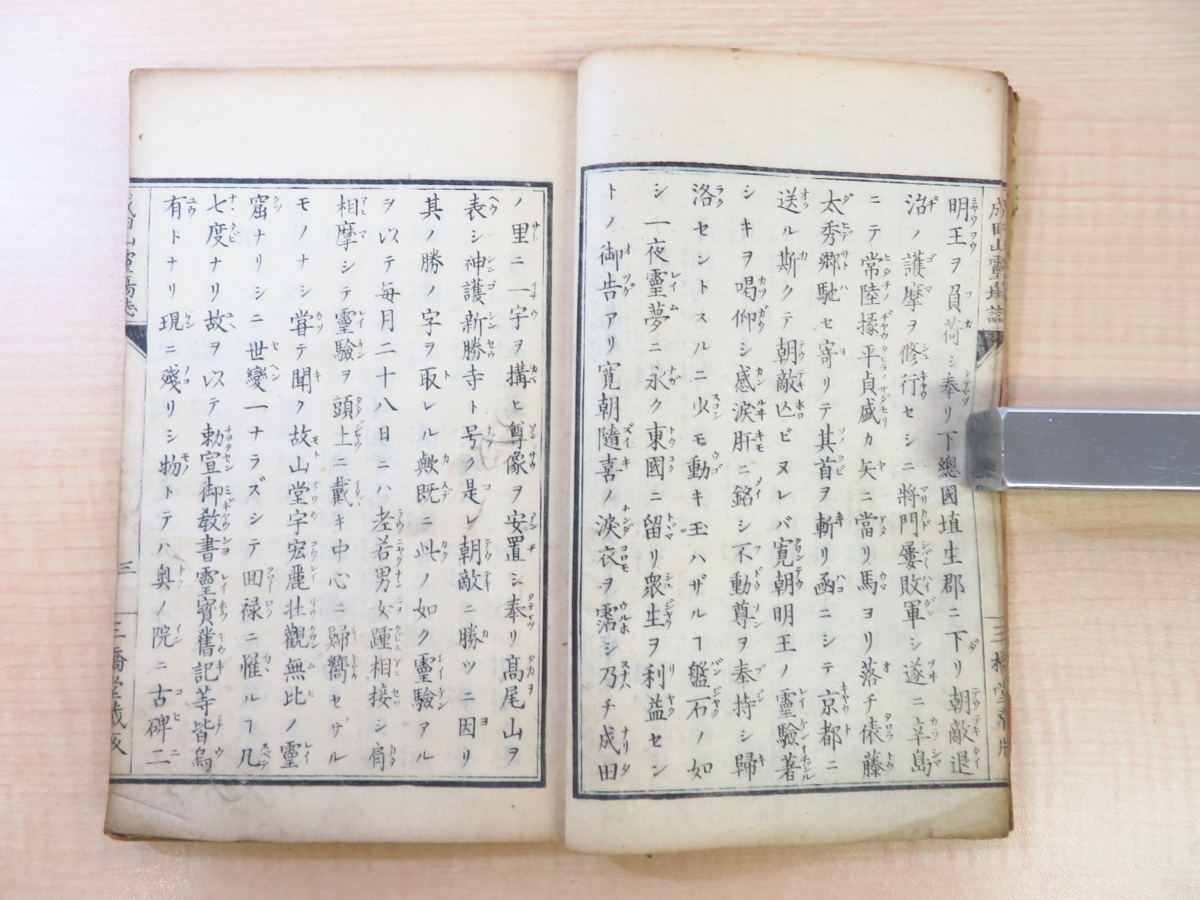 成田山靈場誌
明王ヲ負荷シ奉リ下總國埴生郡ニ下リ朝敵退
治ノ護摩ヲ修行セシニ將門屢敗軍シ遂ニ辛島
ニテ常陸掾平貞盛カ矢ニ當リ馬ヨリ落チ俵藤
太秀郷馳セ寄リテ其首ヲ斬リ函ニシテ京都ニ
送ル斯クテ朝敵亡ビヌレバ寛朝明王ノ靈驗著
シキヲ喝仰シ感涙肝ニ銘シ不動尊ヲ奉持シ歸
洛セントスルニ少モ動キ玉ハザルヿ盤石ノ如
シ一夜靈夢ニ永ク東國ニ留リ衆生ヲ利益セン
トノ御告アリ寛朝隨喜ノ涙衣ヲ霑シ乃チ成田
ノ里ニ一宇ヲ構ヒ尊像ヲ安置シ奉リ髙尾山ヲ
表シ神護新勝寺ト号ク是レ朝敵ニ勝ツニ因リ
其ノ勝ノ字ヲ取レル歟既ニ此ノ如ク靈驗アル
ヲ以テ毎月二十八日ニハ老若男女踵相接シ肩
相摩シテ靈驗ヲ頭上ニ戴キ中心ニ歸嚮セザル
モノナシ甞テ聞ク故山堂宇宏麗壮觀無比ノ靈
窟ナリシニ世變一ナラズシテ回禄ニ罹ルヿ几
七度ナリ故ヲ以テ勅宣御敎書靈寳舊記等皆烏
有トナリ現ニ殘リシ物トテハ奥ノ院ニ古碑二
成田山靈場誌
三
三橋堂藏版